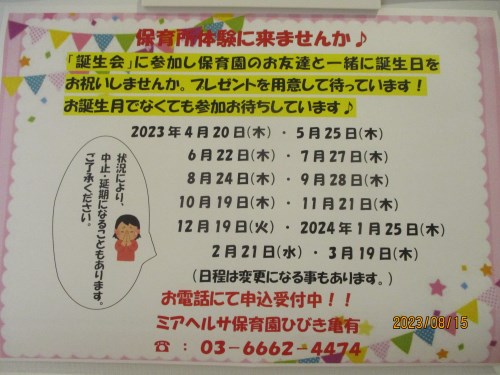 保育所体験に来ませんか♪
「誕生会」に参加し保育園のお友達と一緒に誕生日を
お祝いしませんか。プレゼントを用意して待っています！
お誕生月でなくても参加お待ちしています♪
2023年4月20日(木)・5月25日(木)
6月22日(木)・7月27日(木)
8月24日(木)・9月28日(木)
10月19日(木)・11月21日(木)
12月19日(火)・2024年1月25日(木)
2月21日(水)・3月19日(木)
(日程は変更になる事もあります。)
状況により、
中止・延期になることもあります。
ご了承ください。
お電話にて申込受付中！！
ミアヘルサ保育園ひびき亀有
☎：03-6662-4474
2023/08/15